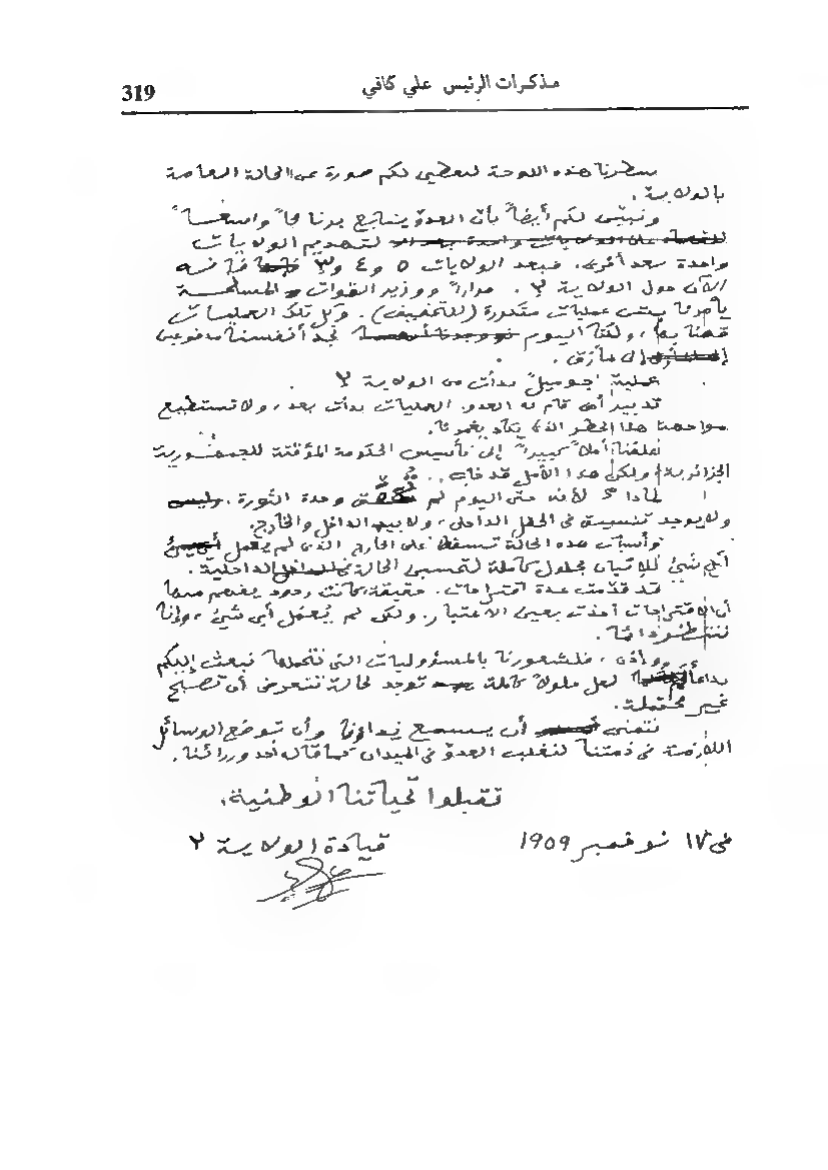 مذكرات الرئيس علي كافي
319
سطرنا هذه اللوحة لنعطي لكم صورة عن الحالة العامة
بالولاية.
ونبيّن لكم أيضاً بأن العدو يتابع برنامجاً واسعاً
لتهديم الولايات
واحدة بعد أخرى. فبعد الولايات ٥ و٤ و٣
الآن حول الولاية ٢. مراراً ووزير القوات المسلحة
يأمرنا بشن عمليات متكررة (للتخفيف). وكل تلك العمليات
قمنا بها، ولكننا اليوم نجد أنفسنا مدفوعين
إلى مأزق.
عملية "جوميل" بدأت من الولاية ٢.
تدبير أمر قام به العدو. العمليات بدأت بعد، ولا نستطيع
مواجهة هذا الخطر الذي يكاد يغمرنا.
علقنا أملاً كبيراً إلى تأسيس الحكومة المؤقتة للجمهورية
الجزائرية ولكن هذا الأمل قد خاب..
لماذا؟ لأنه حتى اليوم لم تتحقق وحدة الثورة.
ولا يوجد تنسيق في الحقل الداخلي، ولا بين الداخل والخارج.
وأسباب هذه الحالة تسقط على الخارج الذي لم يعمل
أي شيء للإتيان بحلول كاملة لتحسين الحالة الداخلية.
قد قدّمت عدة اقتراحات. حقيقة كانت ردود يفهم منها
أن الاقتراحات أخذت بعين الاعتبار. ولكن لم يُعمل أي شيء، وإننا
ننتظر دائماً.
وإذن، فلشعورنا بالمسؤوليات التي نتحملها نبعث إليكم
لحل حلولاً كاملة توجد لحالة تتعرض أن تصبح
غير محتملة.
نتمنى أن يسمع نداؤنا وأن توضع الوسائل
اللازمة في ذمتنا لنغلب العدو في الميدان كما قال أحد وزرائنا.
تقبلوا تحياتنا الوطنية.
في ١٧ نوفمبر ١٩٥٩
قيادة الولاية ٢